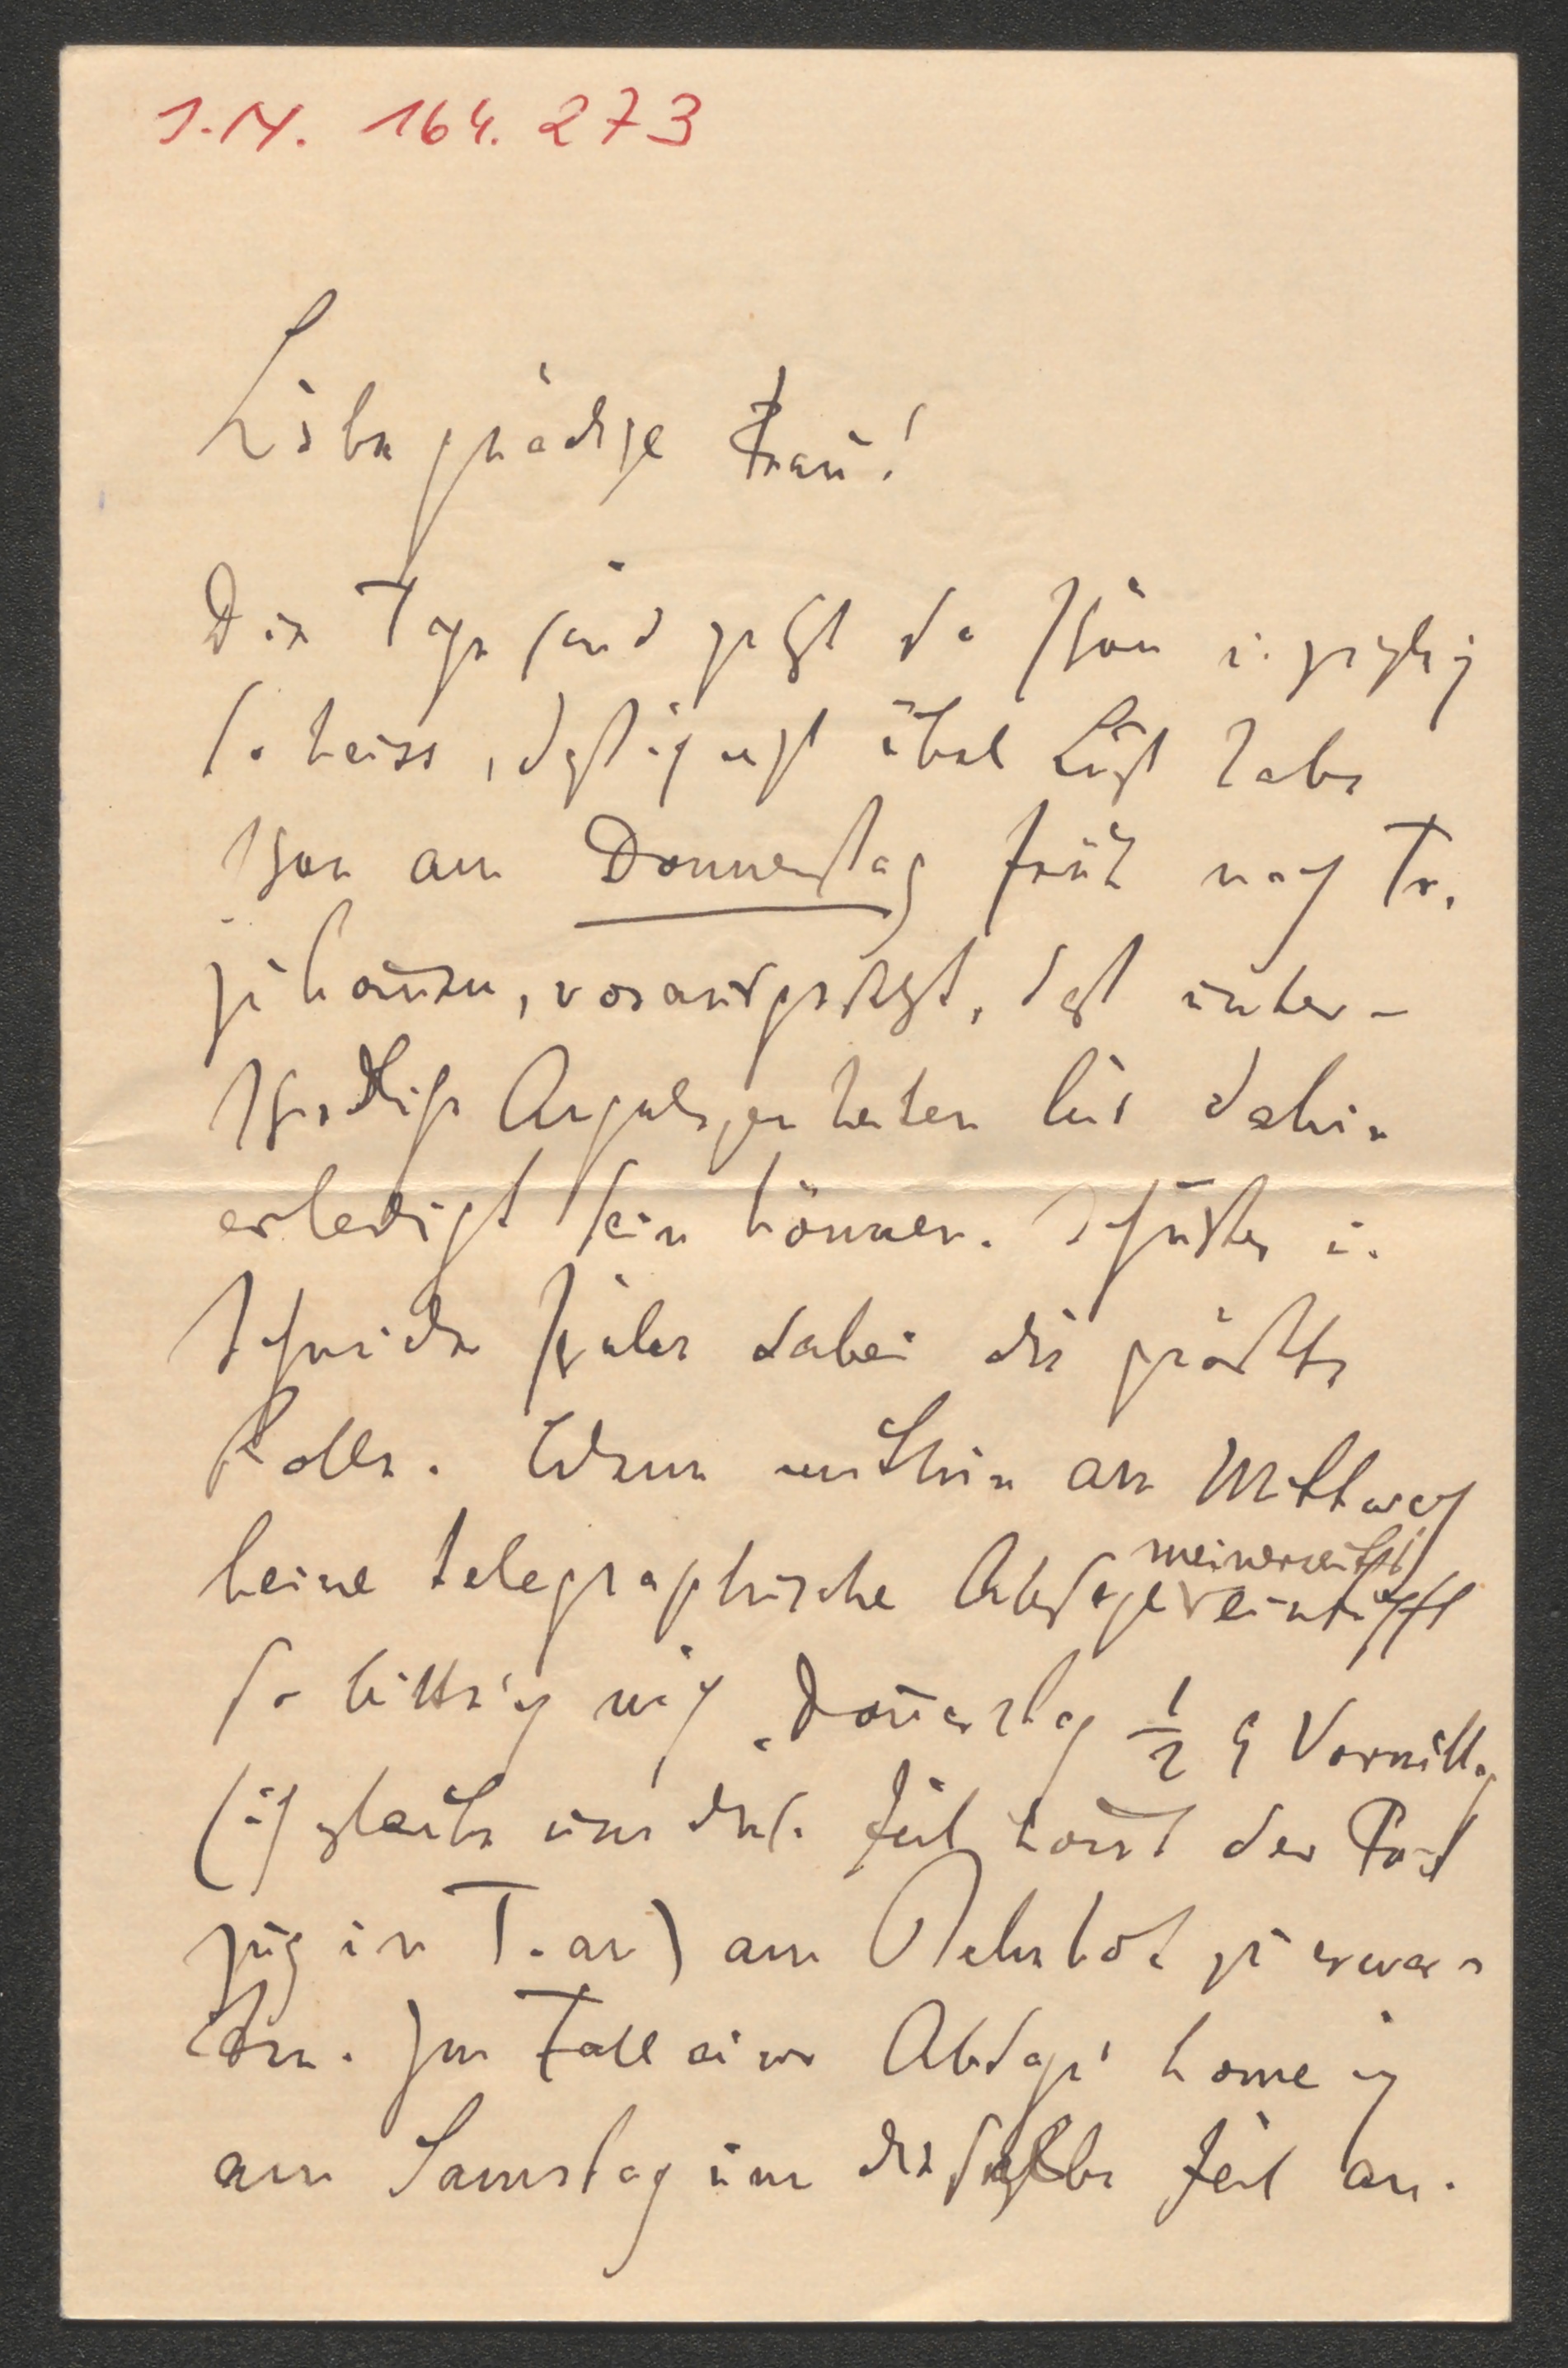 I.N. 164.273
Liebe gnädige Frau!
Die Tage sind jetzt so schön u. zugleich
so heiss, dass ich erst übel Lust habe
schon am Donnerstag früh nach Tr.
zu kommen, vorausgesetzt, dass unter-
schiedliche Angelegenheiten bis dahin
erledigt sein können. Schuster u.
Schneider spielen dabei die größte
Rolle. Wenn mithin am Mittwoch
keine telegraphische Absage meinerseits eintrifft
so bitte ich mich Donnerstag ½ 9 Vormittag
(ich glaube um diese Zeit kommt der Post
zug in T. an) am Bahnhof zu erwar-
ten. Im Fall einer Absage komme ich
am Samstag um dieselbe Zeit an.